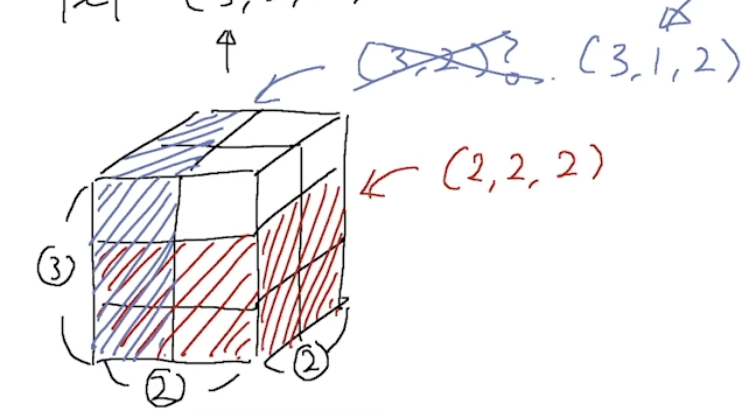 (3,2)? (3,1,2)
(2,2,2)
③
②
②